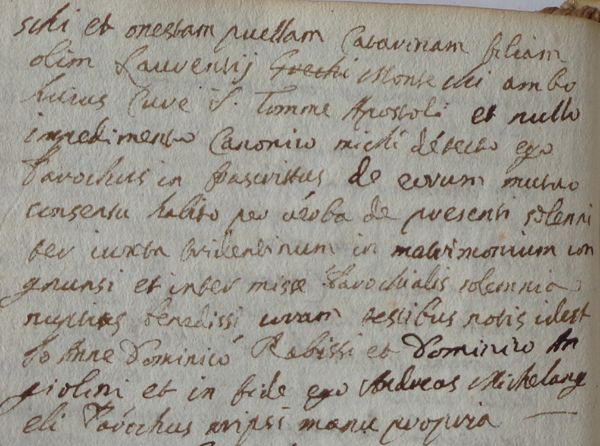 schi et onestam puellam Catarinam filiam
olim Laurentij Monte chi ambo
huius Cure S. Tomme Apostoli et nullo
impedimento Canonico michi detecto ego
Parochus infrascrittus de eorum mutuo
consensu habito per verba de presenti solenni
ter iuxta tridentinum in matrimonium con
gnunsi et inter misse Parochialis solemnia
nuptias benedissi coram testibus notis idest
Io Anne Dominico Rabissi et Dominico An
giolini et in fide ego Andreas Michelang
eli Parochus scripsi manu propria